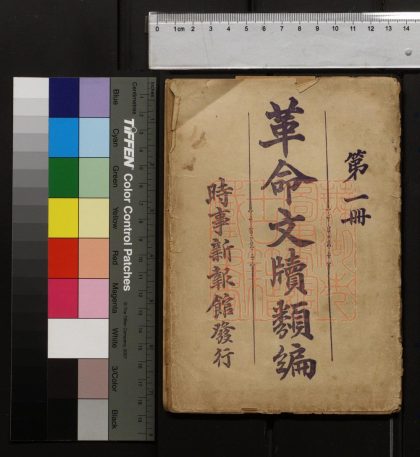 第一冊
革命文牘類編
時事新報館發行
0 1cm 2 3 4 5 6 7 8 9 10 11 12 13 14
Centimetres
TIFFEN Color Control Patches
© The Tiffen Company, 2007
Blue
Cyan
Green
Yellow
Red
Magenta
White
3/Color
Black